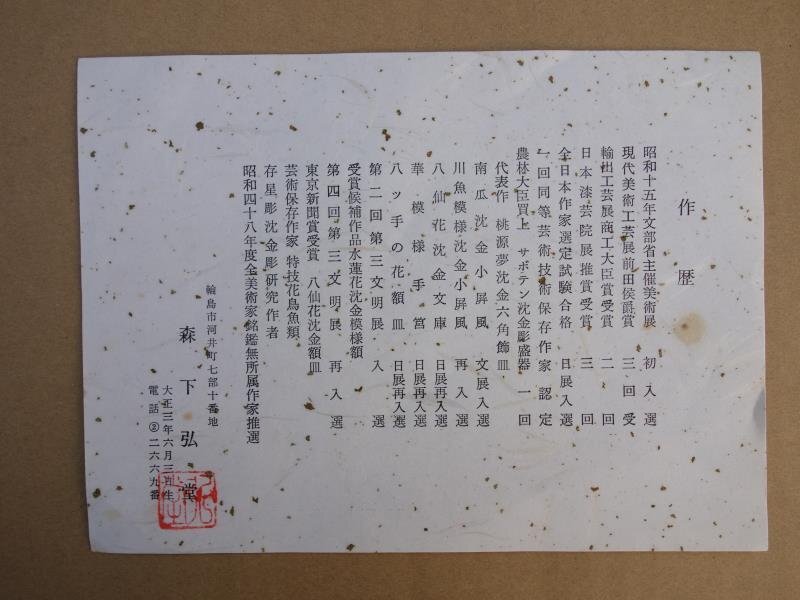 作歴
昭和十五年文部省主催美術展 初入選
現代美術工芸展前田侯爵賞 三回受
輸出工芸展商工大臣賞受賞 二回
日本漆芸院展推賞受賞 三回
全日本作家選定試験合格 日展入選
一回同等芸術技術保存作家 認定
農林大臣買上 サボテン沈金彫盛器 一回
代表作 桃源夢沈金六角飾皿
南瓜沈金小屏風 文展入選
川魚模様沈金小屏風 再入選
八仙花沈金文庫 日展再入選
華模様手筥 日展再入選
八ッ手の花額皿 日展再入選
第二回第三文明展 入選
受賞候補作品水蓮花沈金模様額
第四回第三文明展 再入選
東京新聞賞受賞 八仙花沈金額皿
芸術保存作家 特技花鳥魚類
存星彫沈金彫研究作者
昭和四十八年度全美術家銘鑑無所属作家推選
輪島市河井町七部十番地
森下弘堂
大正三年六月三日生
電話②二六六九番